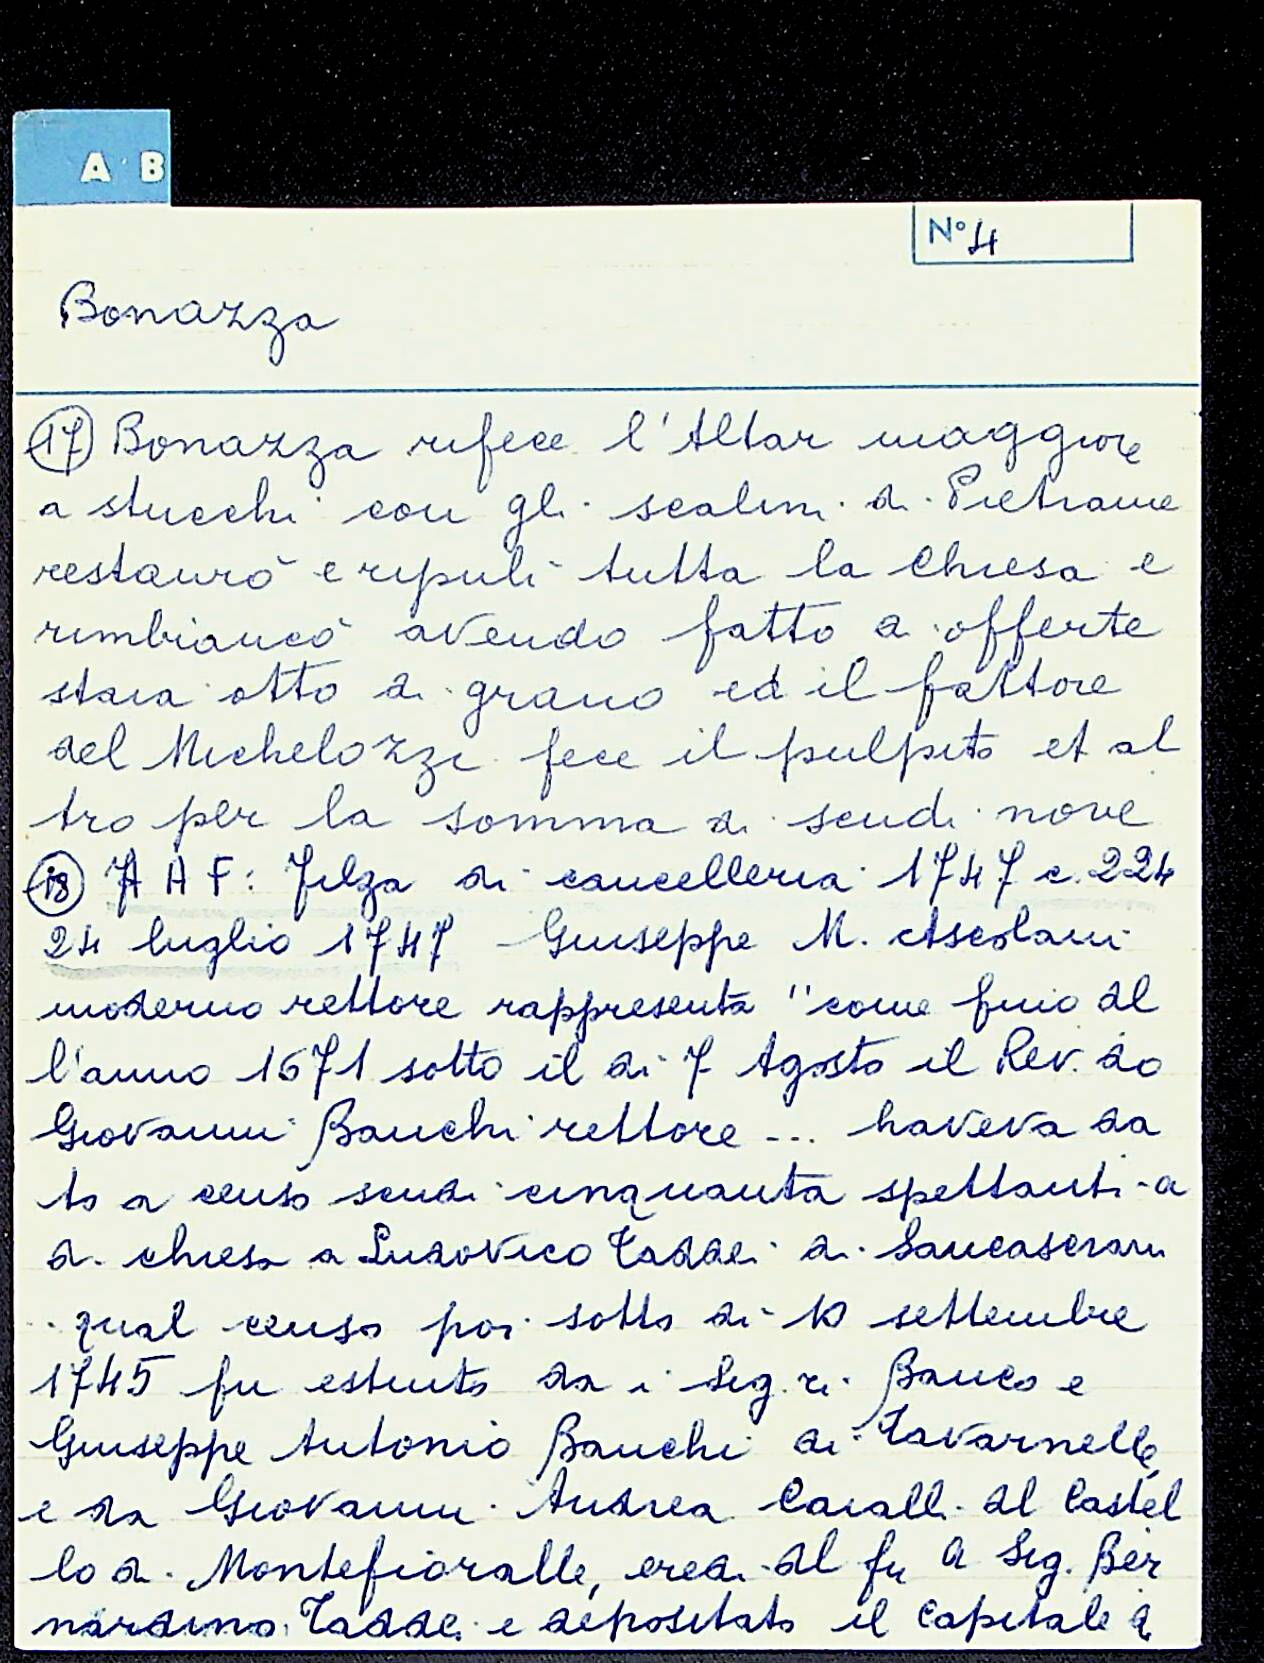 A B
N° 4
Bonazza
17 Bonazza rifece l'Altar maggiore
a stucchi con gli scalini di Pietrame
restaurò e ripulì tutta la Chiesa e
rimbiancò avendo fatto di offerte
staia otto di grano ed il fattore
del Michelozzi fece il pulpito et al
tro per la somma di scudi nove
18 A A F: Filza di cancelleria 1747 c. 224
24 luglio 1747 Giuseppe M. Ascolani
moderno rettore rappresenta "come fino al
l'anno 1671 sotto il dì 7 Agosto il Rev. do
Giovanni Banchi rettore ... haveva da
to a censo scudi cinquanta spettanti a
d. chiesa a Ludovico Taddei di Sancascian
qual censo poi sotto dì 10 settembre
1745 fu estinto da i Sig. ri Banco e
Giuseppe Antonio Banchi di Tavarnelle
e da Giovanni Andrea al Castel
lo di Montefioralle, eredi del fu Sig. Ber
nardino Taddei e depositato il capitale